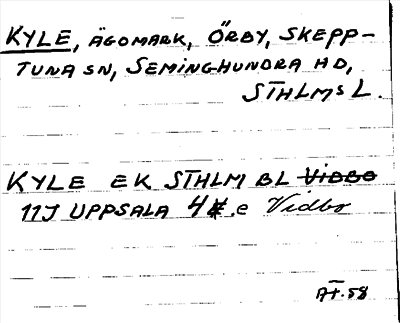 KYLE, ÄGOMARK, ÖRBY, SKEPP-
TUNA SN, SEMINGHUNDRA HD,
STHLMS L.
KYLE EK STHLM BL VIDBO
11J UPPSALA 4 .e Vidbo
AT.58